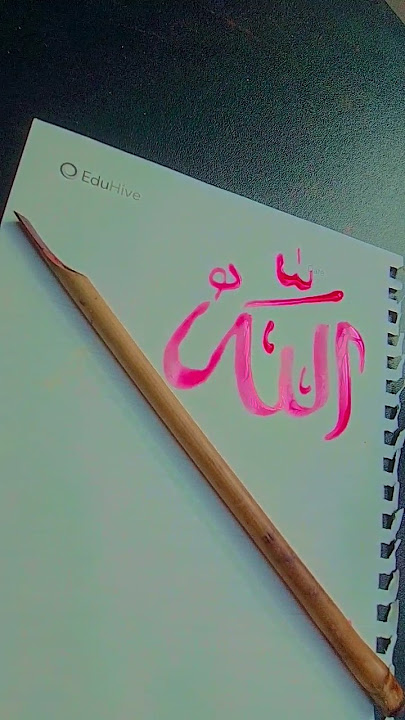 EduHive
اللّٰهُ